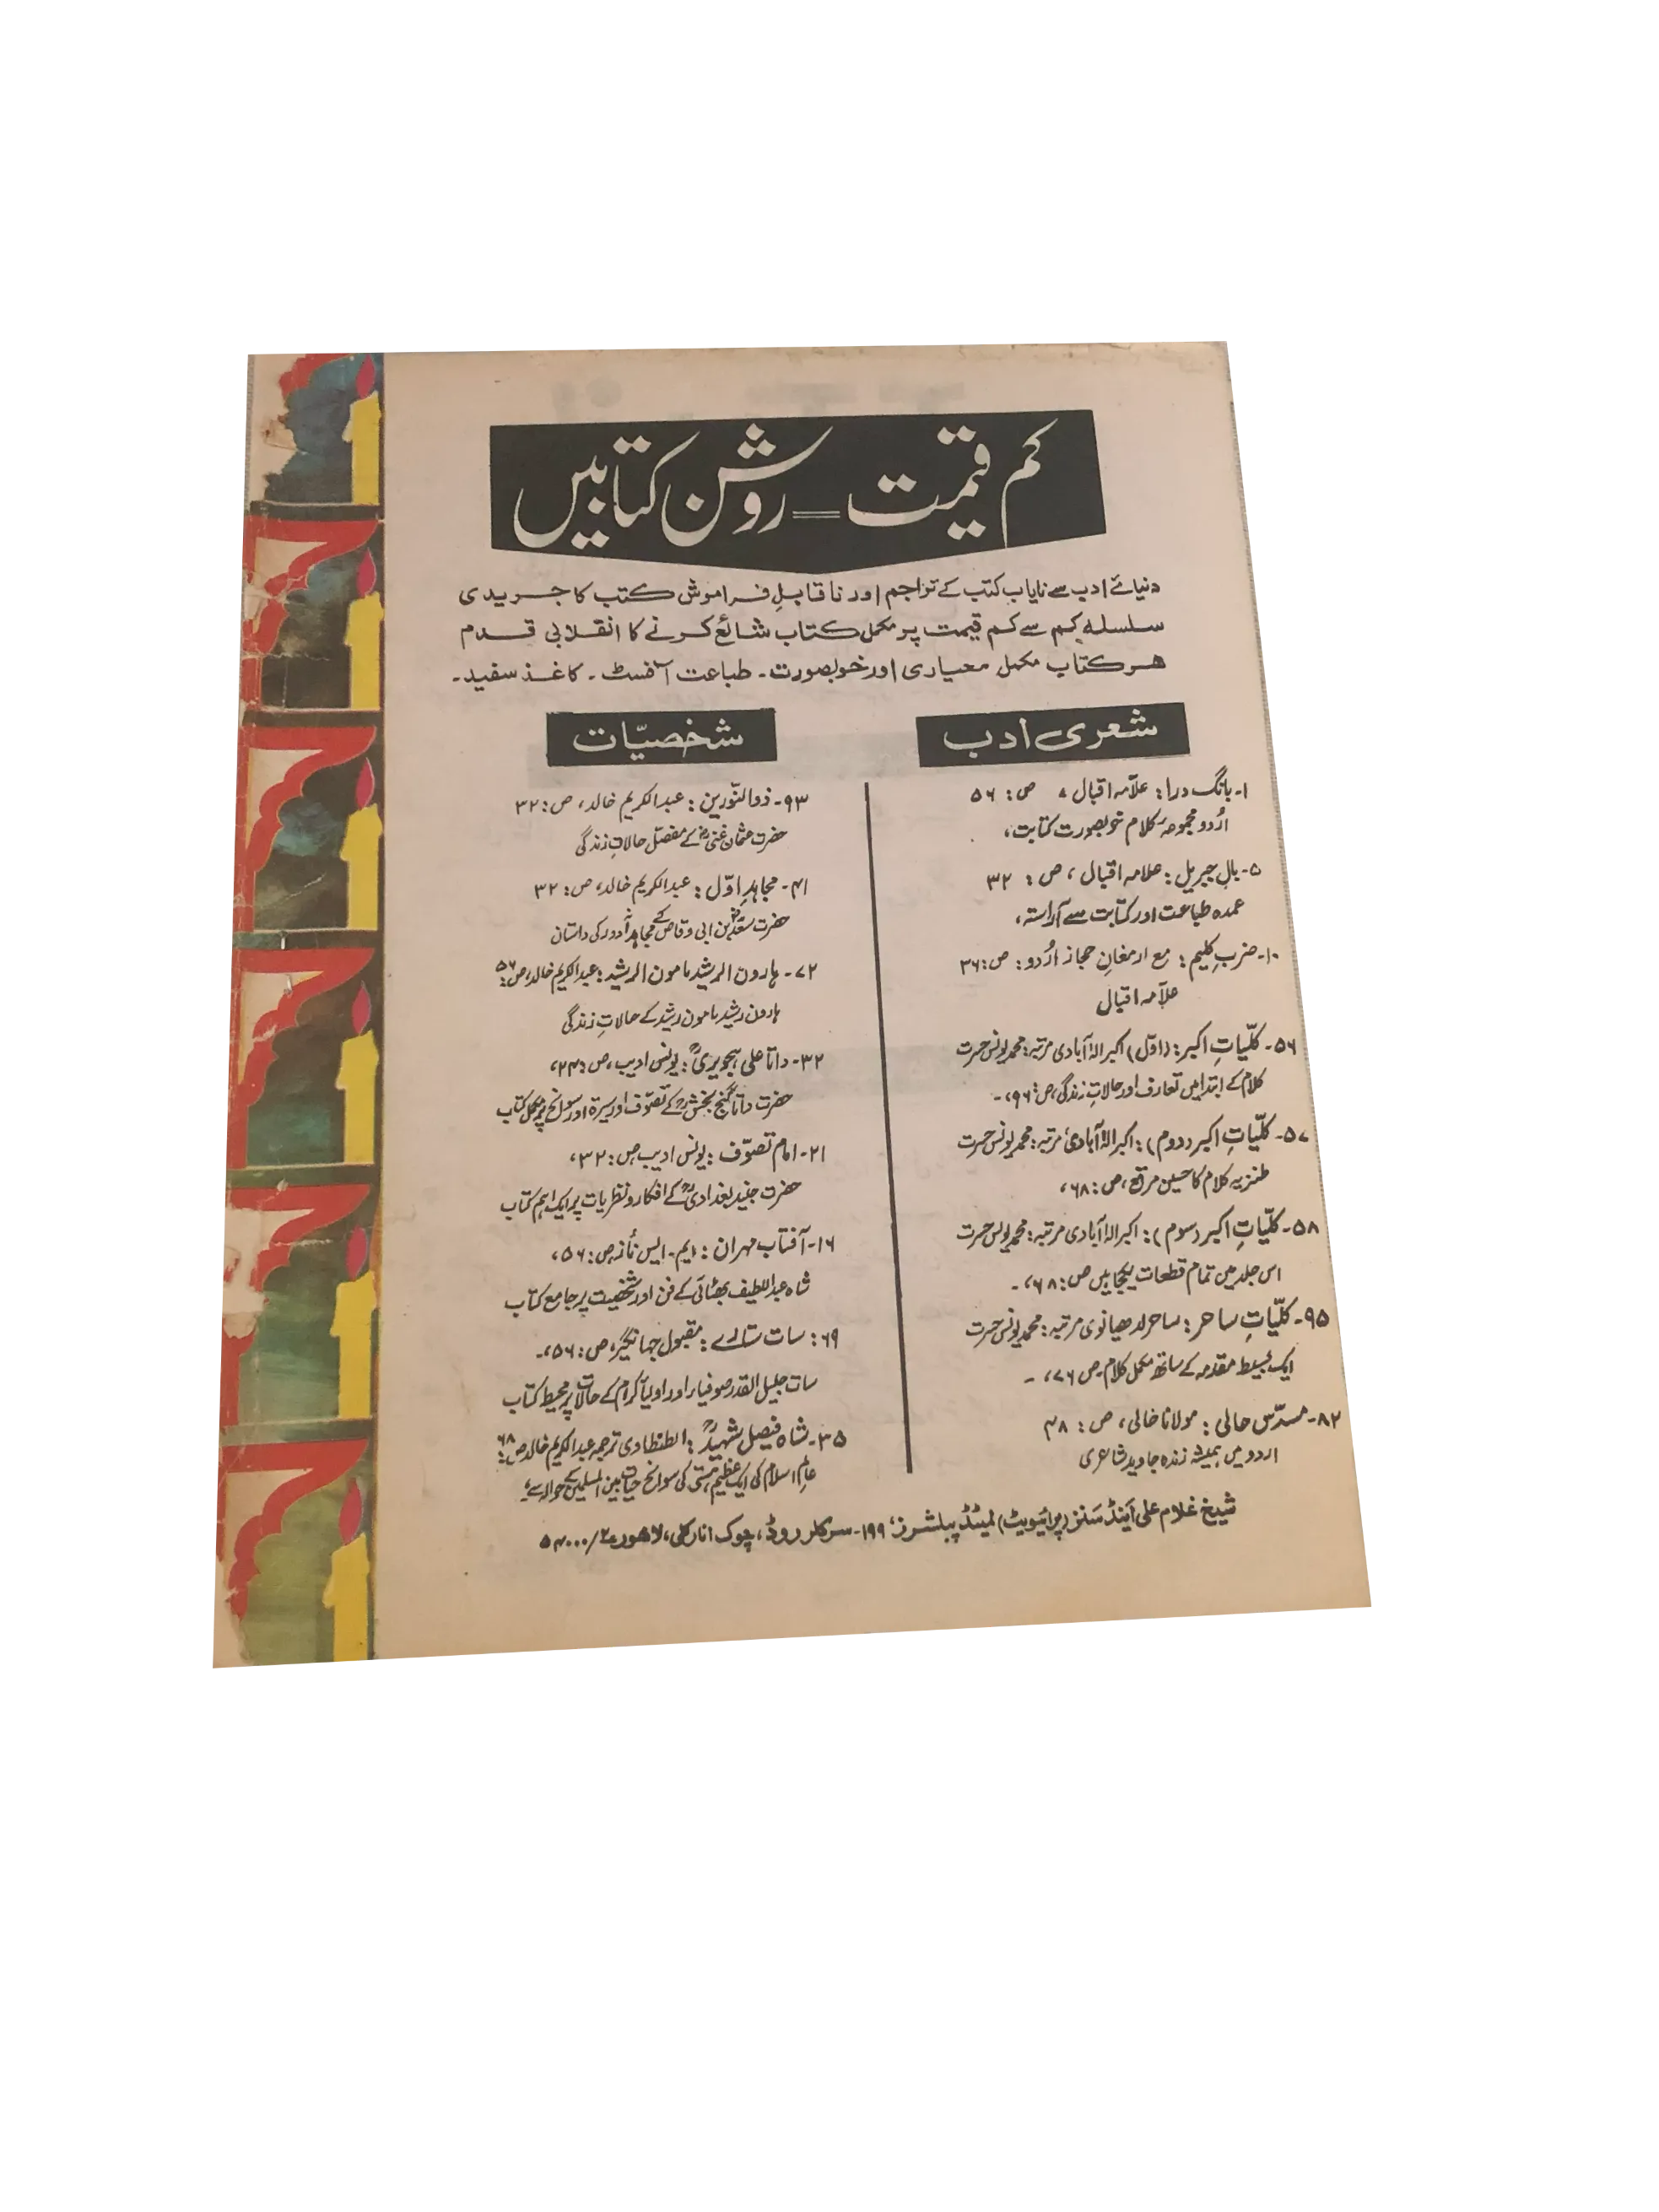 کم قیمت = روشن کتابیں
دنیائے ادب سے نایاب کتب کے تراجم اور ناقابلِ فراموش کتب کا جریدی
سلسلہ کم سے کم قیمت پر مکمل کتاب شائع کرنے کا انقلابی قدم
ھر کتاب مکمل معیاری اور خوبصورت۔ طباعت آفسٹ۔ کاغذ سفید۔
شعری ادب
۱۔ بانگ درا: علامہ اقبال، ص: ۵۶
اُردو مجموعہ کلام خوبصورت کتابت،
۵۔ بالِ جبریل: علامہ اقبال، ص: ۳۲
عمدہ طباعت اور کتابت سے آراستہ،
۱۰۔ ضربِ کلیم: مع ارمغانِ حجاز اُردو: ص: ۳۶
علامہ اقبال
۵۶۔ کلّیاتِ اکبر: (اوّل) اکبر الہ آبادی مرتبہ: محمد یونس حسرت
کلام کے ابتدا میں تعارف اور حالاتِ زندگی، ص: ۹۶،۔
۵۷۔ کلّیاتِ اکبر (دوم): اکبر الہ آبادی مرتبہ: محمد یونس حسرت
طنزیہ کلام کا حسین مرقع، ص: ۶۸،
۵۸۔ کلّیاتِ اکبر (سوم): اکبر الہ آبادی مرتبہ: محمد یونس حسرت
اس جلد میں تمام قطعات یکجا ہیں ص: ۶۸،۔
۹۵۔ کلّیاتِ ساحر: ساحر لدھیانوی مرتبہ: محمد یونس حسرت
ایک بسیط مقدمہ کے ساتھ مکمل کلام۔ ص ۷۶،۔
۸۲۔ مسدّس حالی: مولانا حالی، ص: ۴۸
اردو میں ہمیشہ زندہ جاوید شاعری
شخصیّات
۹۳۔ ذوالنّورین: عبدالکریم خالد، ص: ۳۲
حضرت عثمان غنیؓ کے مفصّل حالاتِ زندگی
۴۱۔ مجاہدِ اوّل: عبدالکریم خالد، ص: ۳۲
حضرت سعدؓ بن ابی وقاص کے مجاہدانہ دور کی داستان
۷۲۔ ہارون الرشید مامون الرشید: عبدالکریم خالد، ص: ۵۶
ہارون رشید مامون رشید کے حالاتِ زندگی
۳۲۔ داتا علی ہجویریؒ: یونس ادیب، ص: ۲۴،
حضرت داتا گنج بخشؒ کے تصوّف اور سیرۃ اور سوانح پر مکمل کتاب
۲۱۔ امام تصوّف: یونس ادیب ص: ۳۲،
حضرت جنید بغدادیؒ کے افکار و نظریات پر ایک اہم کتاب
۱۶۔ آفتاب مہران: ایم۔ ایس ناز ص: ۵۶،
شاہ عبداللطیف بھٹائی کے فن اور شخصیت پر جامع کتاب
۶۹: سات ستارے: مقبول جہانگیر، ص: ۵۶،۔
سات جلیل القدر صوفیاء اور اولیا کرام کے حالات پر محیط کتاب
۳۵۔ شاہ فیصل شہیدؒ: الطنطاوی ترجمہ عبدالکریم خالد ص: ۶۸
عالمِ اسلام کی ایک عظیم ہستی کی سوانح حیات بین المسلمین کے حوالہ سے،
شیخ غلام علی اینڈ سنز (پرائیویٹ) لمیٹڈ پبلشرز، ۱۹۹۔ سرکلر روڈ، چوک انارکلی، لاھور ۲/ ۵۴۰۰۰